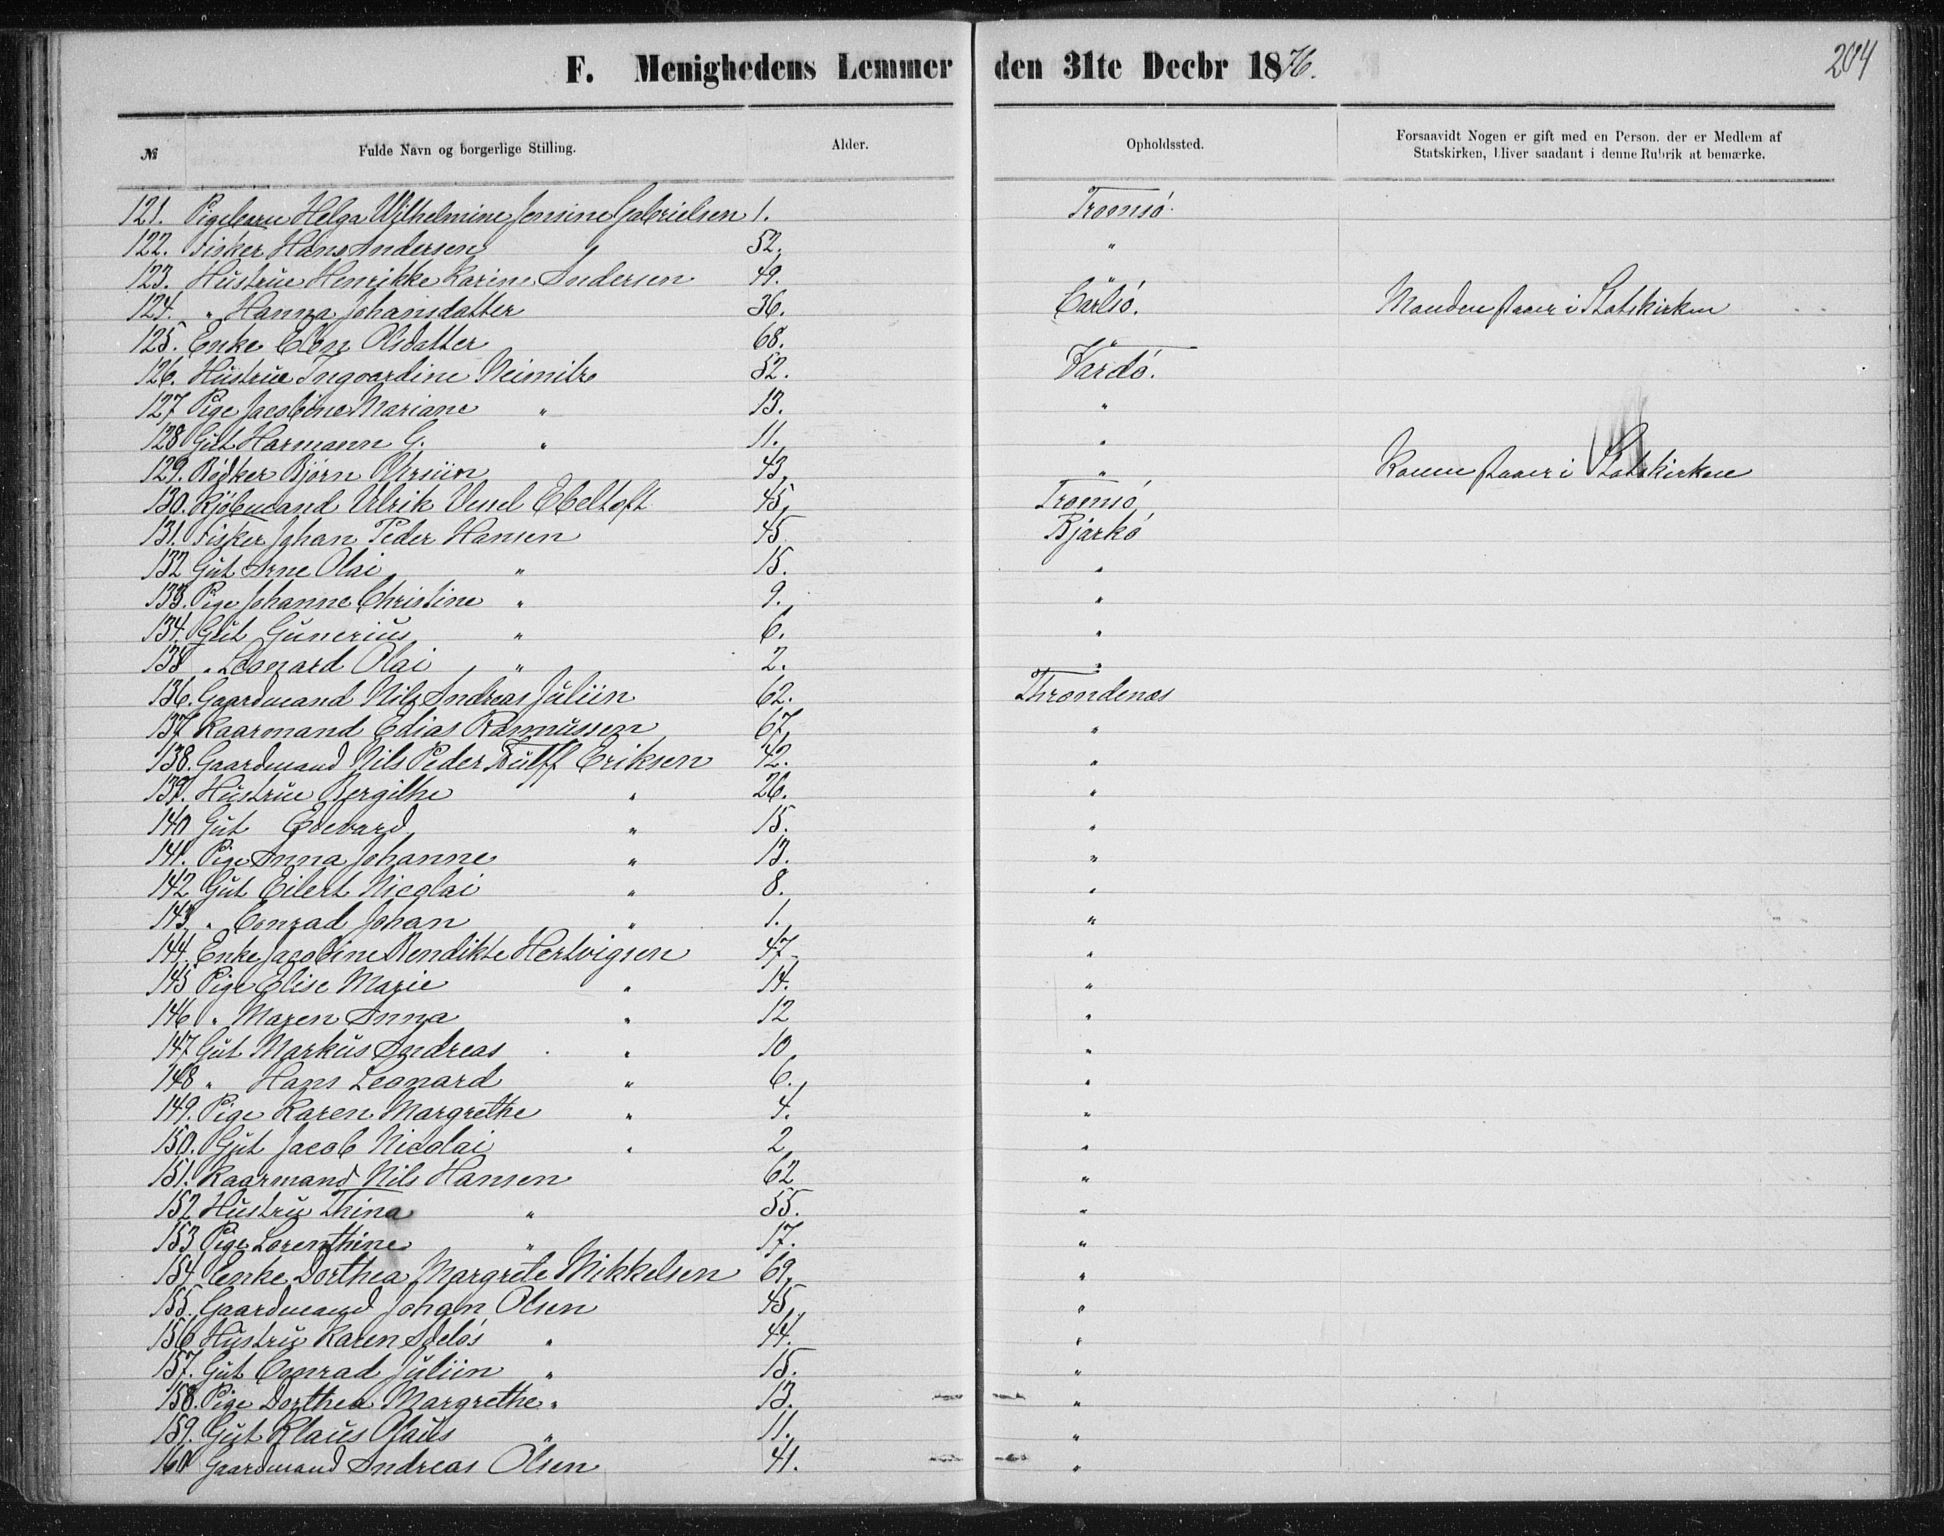 F. Menighedens Lemmer den 31te Decbr 1876.
204
№ Fulde Navn og borgerlige Stilling. Alder. Opholdssted. Forsaavidt Nogen er gift med en Person, der er Medlem af
Statskirken, bliver saadant i denne Rubrik at bemærke.
121. Pigebarn Helga Wilhelmine Jensine Gabrielsen 1. Tromsö.
122. Fisker Hans Andersen 52. "
123. Hustrue Henrikke Karine Andersen 49. "
124. " Hanna Johansdatter 36. Carlsö. Manden staaer i Statskirken
125. Enke Elen Olsdatter 68. "
126. Hustrue Ingvardine 52. Vardö.
127 Pige Jacobine Mariane " 13. "
128 Gut Harmann G. " 11. "
129. Bödker Björn 43. " Konen staaer i Statskirken
130. Kjöbmand Ulrik Ebeltoft 45. Tromsö
131. Fisker Johan Peder Hansen 45. Bjarkö
132 Gut Arne Olai " 15. "
133. Pige Johanne Christine " 9. "
134. Gut Gunerius " 6. "
135 " Leonard Olai " 2. "
136. Gaardmand Nils Andreas Juliin 62. Throndenæs
137 Kaarmand Edias Rasmussen 67. "
138. Gaardmand Nils Peder Eriksen 42. "
139. Hustrue Bergithe " 26. "
140 Gut Edevard " 15. "
141. Pige Anna Johanne " 13. "
142 Gut Eilert Nicolai " 8. "
143 " Conrad Johan " 1. "
144. Enke Jacobine Bendikte Hertvigsen 47. "
145 Pige Elise Marie " 14. "
146 " Maren Anna " 12 "
147 Gut Markus Andreas " 10. "
148 " Hans Leonard " 6. "
149. Pige Karen Margrethe " 4. "
150. Gut Jacob Nicolai " 2 "
151. Kaarmand Nils Hansen 62 "
152 Hustru Thina " 55. "
153 Pige Lorenthine " 17. "
154 Enke Dorthea Margrete Mikkelsen 69. "
155. Gaardmand Johan Olsen 45. "
156 Hustru Karen " 44. "
157. Gut Conrad Juliin " 15. "
158. Pige Dorthea Margrethe " 13. "
159. Gut Klaus Olaus " 11. "
160 Gaardmand Andreas Olsen 41. "